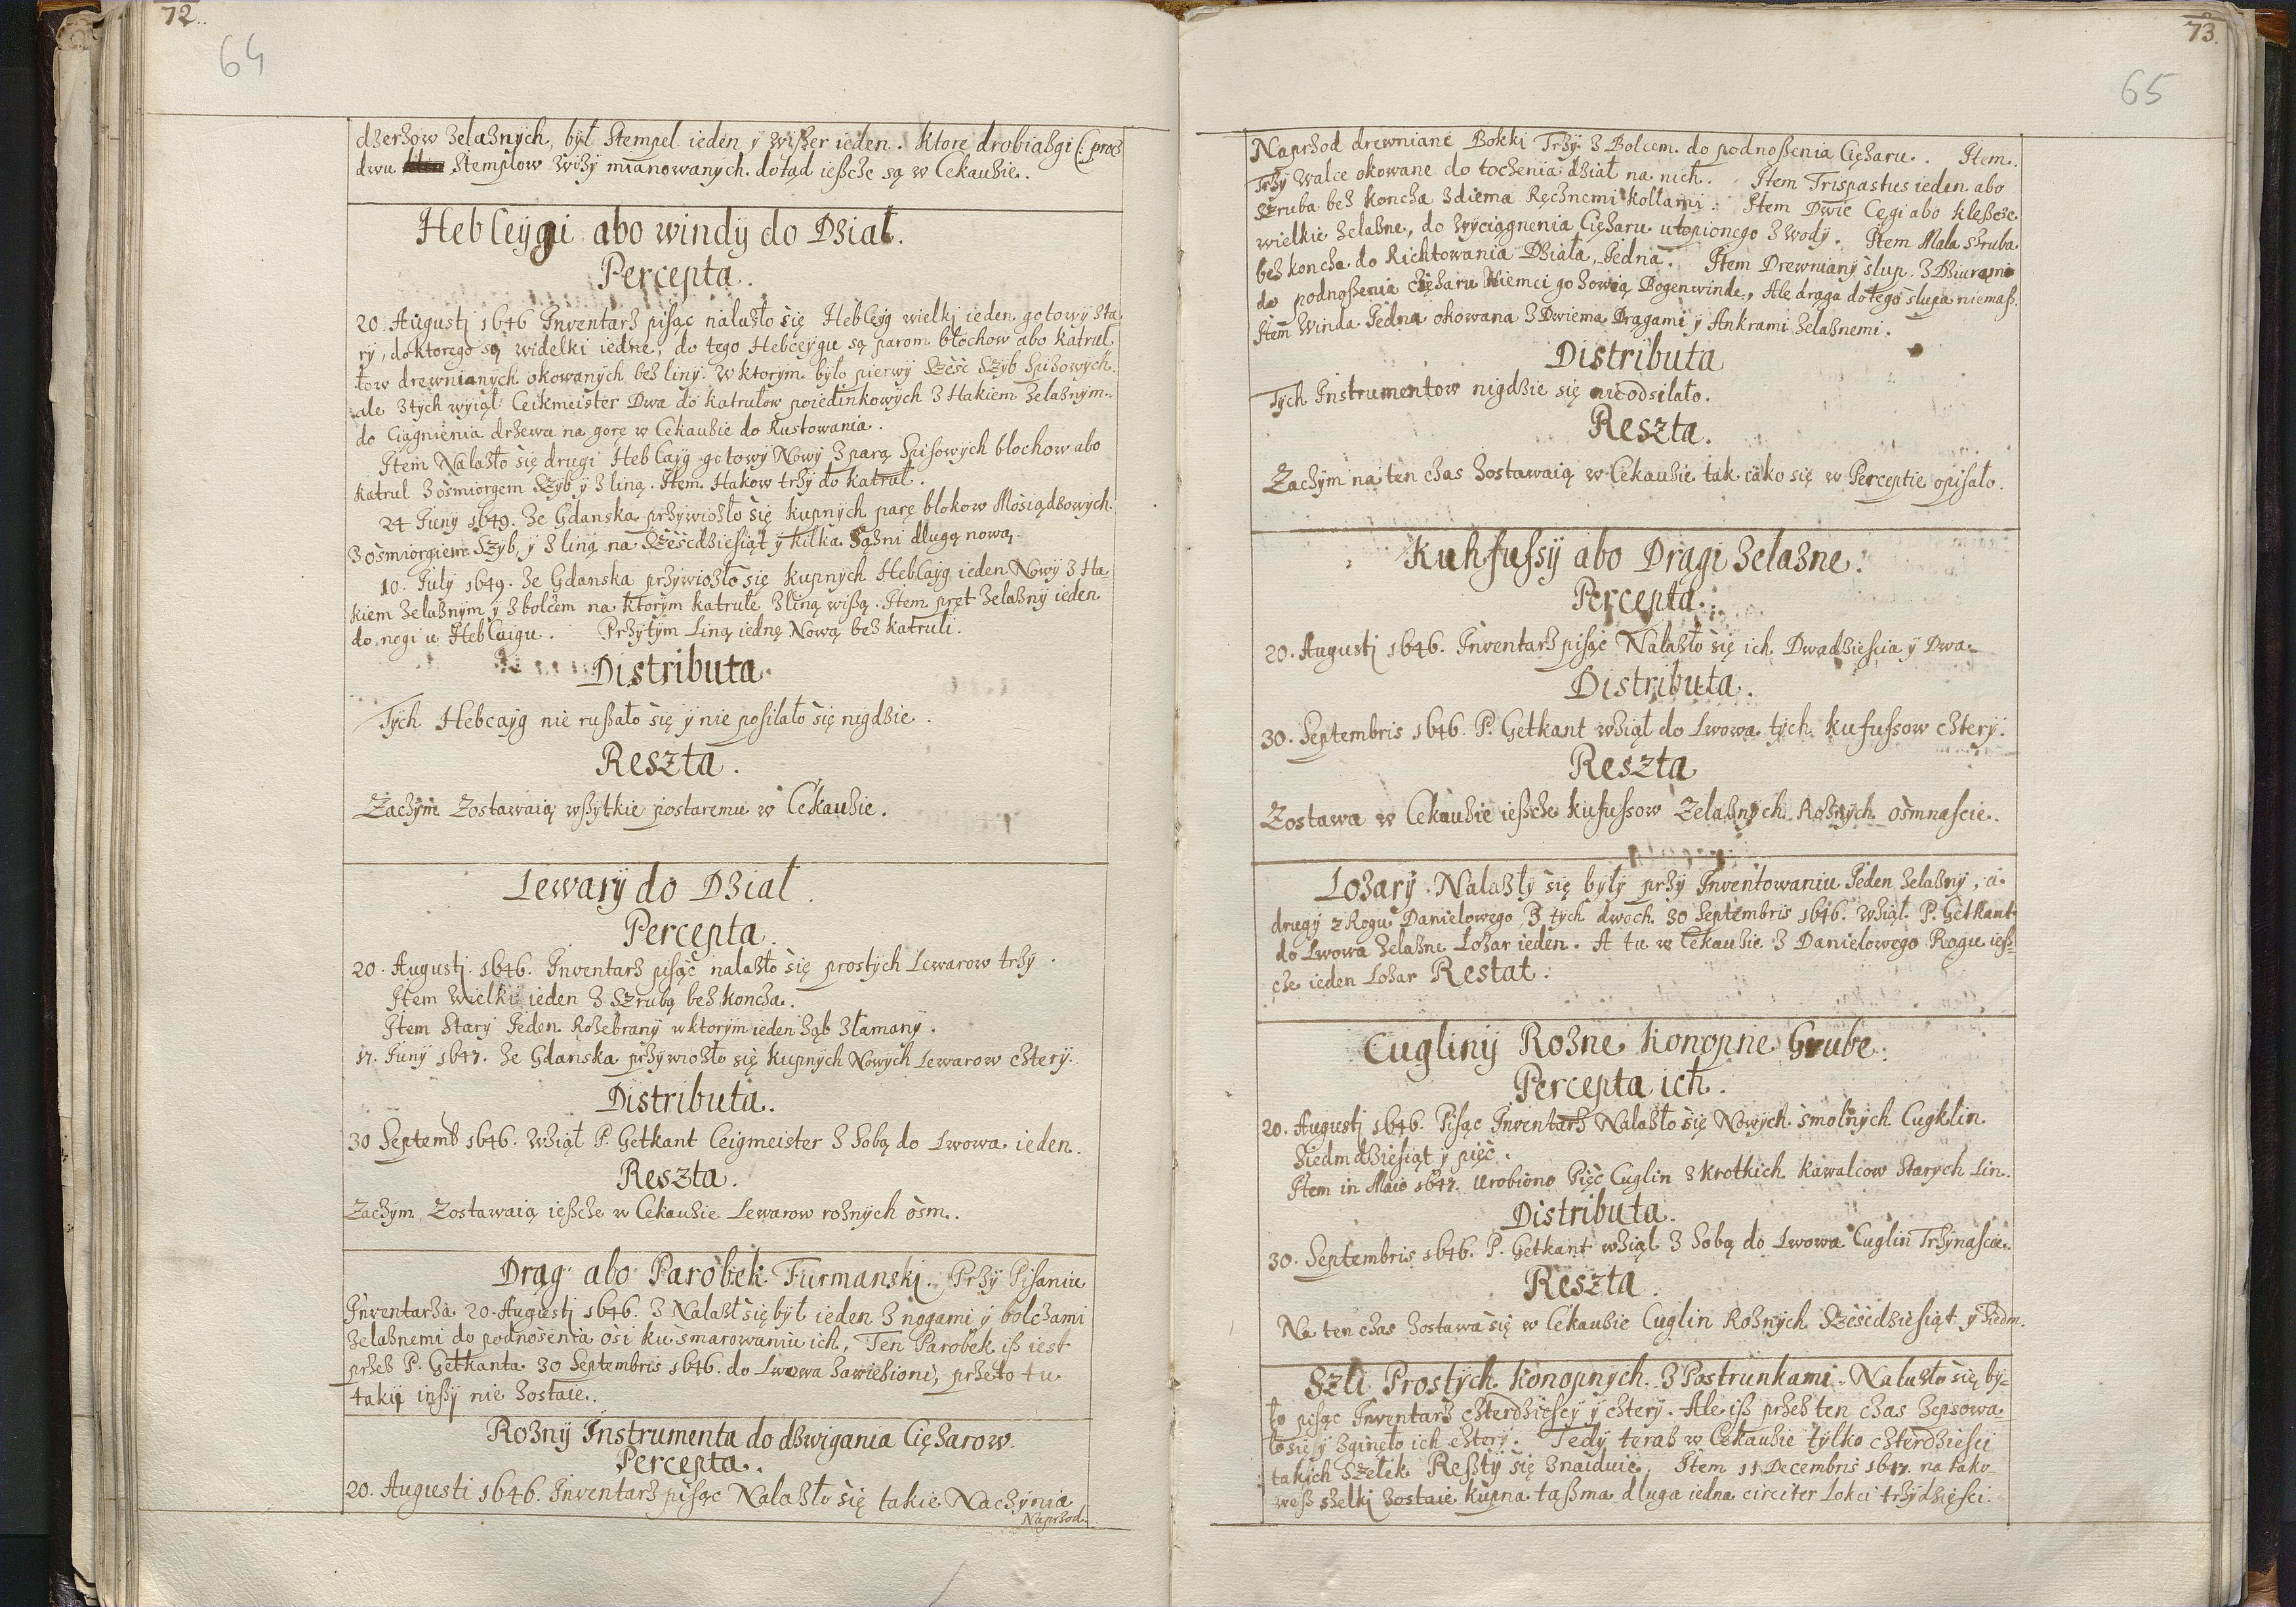 72.
64
dzerzow zelaznych, był Stempel ieden y wiszer ieden. Ktore drobiazgi (: procz
dwu Stemplow wizy mianowanych. dotąd ieszcze są w Cekauzie.
Hebceÿgi abo windÿ do Dział.
Percepta.
20. Augustj 1646 Inventarz pisąc nalazło się Hebceÿg wielkj ieden gotowÿ sta
rÿ, do ktorego są widelki iedne, do tego Hebceygu są parom błochow abo katrul
łow drewnianÿch okowanÿch bez linÿ. W ktorÿm było pierwÿ Szesc Szÿb Spizowÿch
ale z tÿch wÿiął Ceikmeister Dwa do katrułow poiedinkowÿch z Hakiem zelaznÿm.
do Ciągnienia drzewa na gorę w Cekauzie do Rustowania.
Item Nalazło się drugi Hebcaÿg gotowÿ Nowÿ z parą Spisowÿch blochow abo
katrul z osmiorgem Szÿb ÿ z liną. Item Hakow trzÿ do katrul.
24 Junÿ 1649. Ze Gdanska przÿwiozło się kupnÿch parę blokow Mosiądzowÿch.
z osmiorgiem Szÿb, ÿ z liną na Szescdziesiąt ÿ kilka Sązni dlugą nową.
10. Julÿ 1649. Ze Gdanska przÿwiozło się kupnÿch Hebcaÿg ieden Nowÿ z Ha
kiem zelaznÿm ÿ z bolcem na ktorÿm katrule z liną wiszą. Item pręt zelaznÿ ieden
do nogi u Hebcaigu. Przÿtÿm Liną iednę Nową bez katruli.
Distributa
Tÿch Hebcaÿg nie ruszało się ÿ nie posilało się nigdzie.
Reszta.
Zaczÿm Zostawaią wszÿtkie postaremu w Cekauzie.
Lewarÿ do Dział.
Percepta.
20. Augustj. 1646. Inventarz pisąc nalazło się prostÿch Lewarow trzÿ.
Item Wielki ieden z Szrubą bez koncza.
Item Starÿ Ieden Rozebranÿ w ktorÿm ieden ząb złamanÿ.
17. Junÿ 1647. Ze Gdanska przÿwiozło się kupnÿch Nowÿch Lewarow czterÿ.
Distributa.
30 Septemb 1646. Wziął P. Getkant Ceigmeister z Sobą do Lwowa ieden.
Reszta.
Zaczÿm Zostawaią ieszcze w Cekauzie Lewarow roznÿch osm.
Drąg abo Parobek Furmanskj. Przÿ Pisaniu
Inventarza 20. Augustj 1646. z Nalazł się bÿł ieden z nogami ÿ bolczami
zelaznemi do podnosenia osi ku smarowaniu ich, Ten Parobek isz iest
przez P. Getkanta 30 Septembris 1646. do Lwowa zawiesioni, przeto tu
takiÿ inszÿ nie zostaie.
Roznÿ Instrumenta do dzwigania Ciężarow.
Percepta.
20. Augusti 1646. Inventarz pisąc Nalazło się takie Naczÿnia
Naprzod.
73.
65
Naprzod drewniane Bokki Trzÿ z Bolcem. do podnoszenia Ciężaru. Item.
Trzÿ Walce okowane do toczenia dział na nich. Item Trispastus ieden abo
szruba bez koncza z diema Ręcznemi kollami. Item Dwie Cęgi abo kleszcze
wielkie zelazne, do wÿciągnenia Ciężaru utopionego z wodÿ. Item Mala szruba
bez koncza do Richtowania Działa, Iedna. Item Drewnianÿ slup z Dziurami
do podnoszenia ciężaru Niemci go zowią Bogenwinde, Ale drąga do tego slupa niemasz.
Item Winda Iedna okowana z Dwiema Drągami ÿ Ankrami zelaznemi.
Distributa
Tÿch Instrumentow nigdzie się nieodsilało.
Reszta.
Zaczÿm na ten czas zostawaią w Cekauzie tak iako się w Perceptie opisało.
Kuhfussÿ abo Drągi zelazne.
Percepta.
20. Augustj 1646. Inventarz pisąc Nalazło się ich Dwadziescia ÿ Dwa.
Distributa.
30. Septembris 1646. P. Getkant wziął do Lwowa tÿch kufussow czterÿ.
Reszta
Zostawa w Cekauzie ieszcze kufussow Zelaznÿch Roznÿch osmnascie.
Lozarÿ. Nalazłÿ się bÿłÿ przÿ Inventowaniu Ieden zelaznÿ, a
drugÿ z Rogu Danielowego z tÿch dwoch. 30 Septembris 1646. Wziął P. Getkant
do Lwowa zelazne Lozar ieden. A tu w Cekauzie z Danielowego Rogu iesz=
cze ieden Lozar Restat.
Cuglinÿ Rozne konopne Grube.
Percepta ich.
20. Augustj 1646. Pisąc Inventarz Nalazło się Nowÿch smolnÿch Cugklin
siedmdziesiąt ÿ pięc.
Item in Maio 1647. urobiono Pięc Cuglin z krotkich kawalcow Starÿch Lin.
Distributa.
30. Septembris 1646. P. Getkant wziął z Sobą do Lwowa Cuglin Trzÿnascie.
Reszta.
Na ten czas zostawa się w Cekauzie Cuglin Roznÿch Szescdziesiąt ÿ siedm.
Szli Prostÿch konopnÿch z Postrunkami. Nalazło się bÿ=
ło pisąc Inventarz czterdziescÿ ÿ czterÿ. Ale isz przez ten czas zepsowa=
ło się ÿ zginęło ich czterÿ. Tedÿ teraz w Cekauzie tÿlko czterdziesci
takich Szelek Resztÿ się znaiduie, Item 11 Decembris 1647. na tako=
wesz szelkj zostaie kupna taszma dluga iedna circiter Lokci trzÿdziesci.